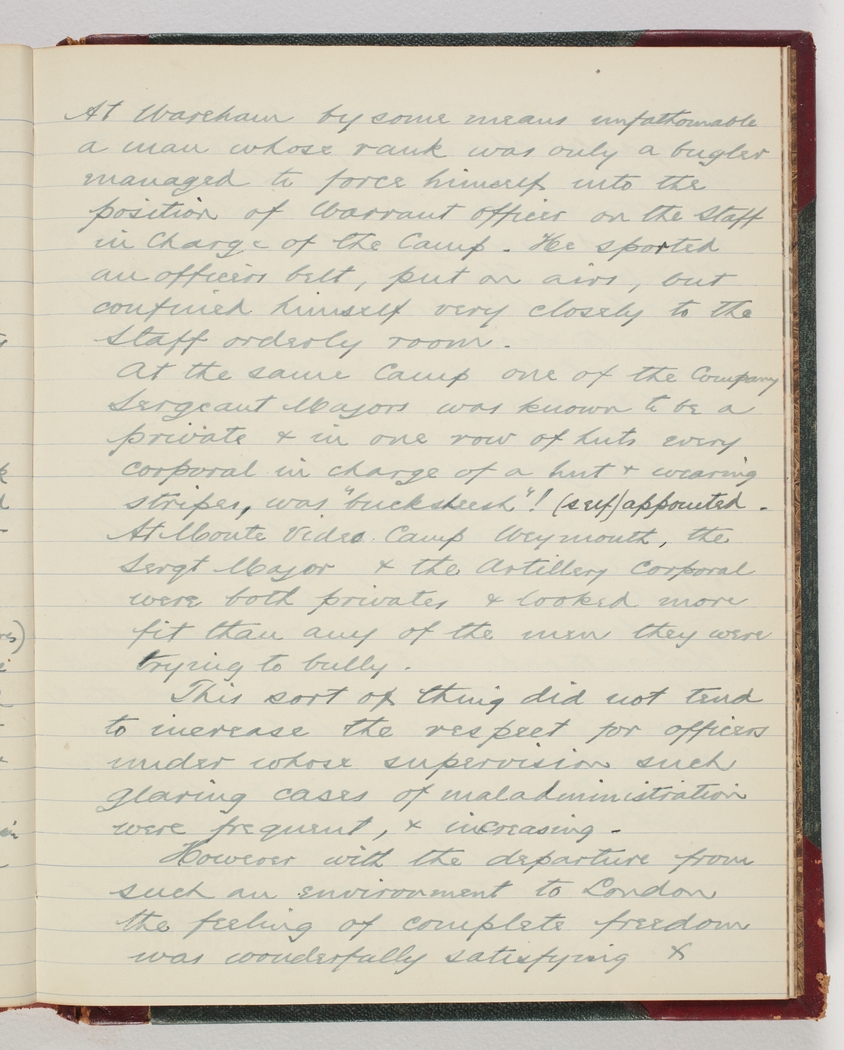 At Wareham by some means unfathomable
a man whose rank was only a bugler
managed to force himself into the
position of Warrant officer on the Staff
in Charge of the Camp. He sported
an officers belt, put on airs, but
confined himself very closely to the
Staff orderly room.
At the same Camp one of the Company
Sergeant Majors was known to be a
private & in one row of huts every
corporal in charge of a hut & wearing
stripes, was "bucksheesh"! (self) appointed.
At Monte Video Camp Weymouth, the
Sergt Major & the Artillery Corporal
were both privates & looked more
fit than any of the men they were
trying to bully.
This sort of thing did not tend
to increase the respect for officers
under whose supervision such
glaring cases of maladministration
were frequent, & increasing.
However with the departure from
such an environment to London
the feeling of complete freedom
was wonderfully satisfying &